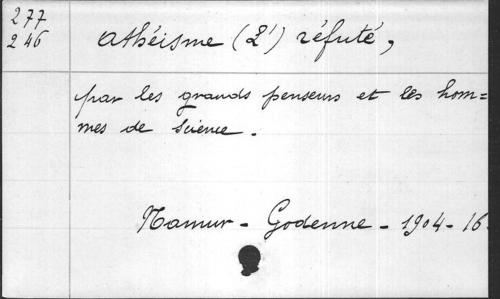 277
246
Athéisme (L') réfuté,
par les grands penseurs et les hom=
mes de science.
Namur - Godenne - 1904 - 16.